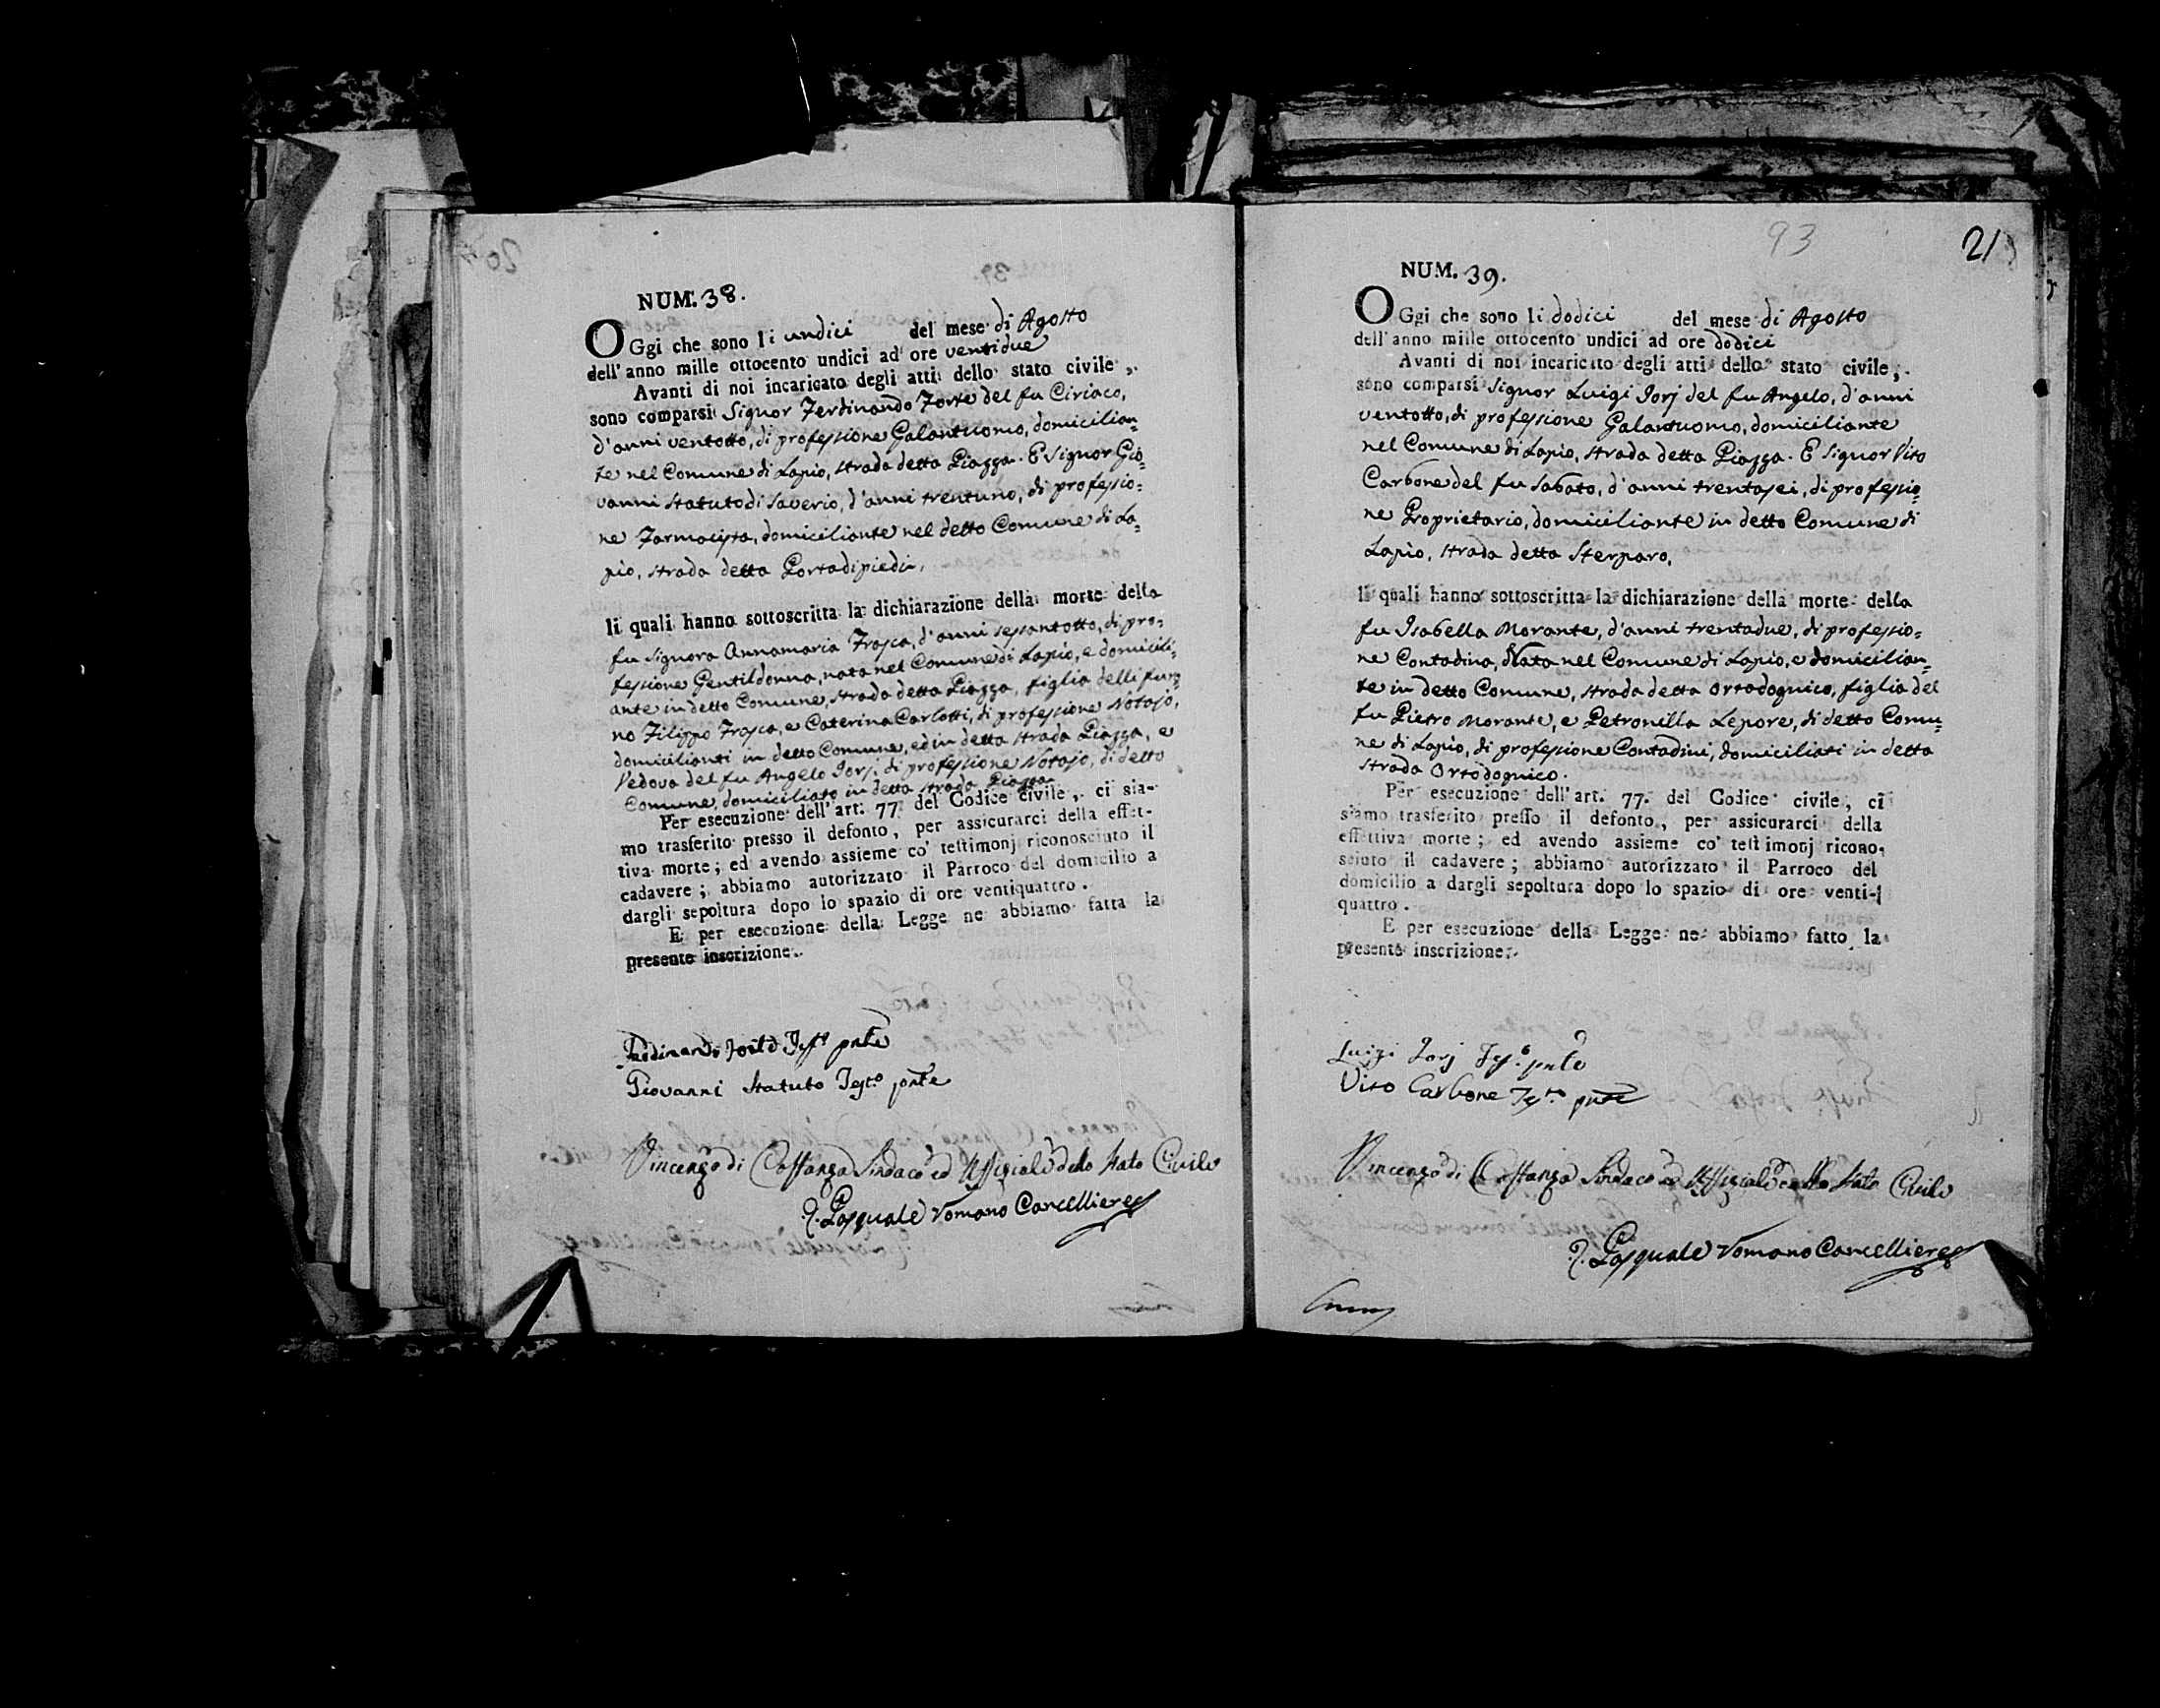 NUM. 38.
OGgi che sono li undici del mese di Agosto
dell' anno mille ottocento undici ad ore ventidue
Avanti di noi incaricato degli atti dello stato civile,
sono comparsi Signor Ferdinando Forte del fu Ciriaco,
d'anni ventotto, di professione Galantuomo, domicilian=
te nel Comune di Lapio, strada detta Piazza. E Signor Gio=
vanni Statuto di Saverio, d'anni trentuno, di professio=
ne Farmacista, domiciliante nel detto Comune di La=
pio, strada detta Portadipiedi,
li quali hanno sottoscritta la dichiarazione della morte della
fu Signora Annamaria Frasca, d'anni sessantotto, di pro=
fessione Gentildonna, nata nel Comune di Lapio, e domicili=
ante in detto Comune, strada detta Piazza, figlia delli furo=
no Filippo Frasca, e Caterina Carlotti, di professione Notajo,
domicilianti in detto Comune, ed in detta strada Piazza, e
Vedova del fu Angelo Iorj, di professione Notajo, di detto
Comune, domiciliato in detta strada Piazza
Per esecuzione dell' art. 77 del Codice civile, ci sia-
mo trasferito presso il defonto, per assicurarci della effet-
tiva morte; ed avendo assieme co' testimonj riconosciuto il
cadavere; abbiamo autorizzato il Parroco del domicilio a
dargli sepoltura dopo lo spazio di ore ventiquattro.
E per esecuzione della Legge ne abbiamo fatta la
presente inscrizione.
Ferdinando Forte Testo pnte
Giovanni Statuto Testo pnte
Vincenzo di Costanza Sindaco ed Uffiziale dello Stato Civile
P. Pasquale Romano Cancelliere
93
21
NUM. 39.
OGgi che sono li dodici del mese di Agosto
dell' anno mille ottocento undici ad ore dodici
Avanti di noi incaricato degli atti dello stato civile,
sono comparsi Signor Luigi Iorj del fu Angelo, d'anni
ventotto, di professione Galantuomo, domiciliante
nel Comune di Lapio, strada detta Piazza. E Signor Vito
Carbone del fu Sabato, d'anni trentasei, di professio=
ne Proprietario, domiciliante in detto Comune di
Lapio, strada detta Sterparo,
li quali hanno sottoscritta la dichiarazione della morte della
fu Isabella Morante, d'anni trentadue, di professio=
ne Contadina, Nata nel Comune di Lapio, e domicilian=
te in detto Comune, strada detta Ortodognico, figlia del
fu Pietro Morante, e Petronilla Lepore, di detto Comu=
ne di Lapio, di professione Contadini, domiciliati in detta
strada Ortodognico.
Per esecuzione dell' art. 77. del Codice civile, ci
siamo trasferito presso il defonto, per assicurarci della
effettiva morte; ed avendo assieme co' testimonj ricono-
sciuto il cadavere; abbiamo autorizzato il Parroco del
domicilio a dargli sepoltura dopo lo spazio di ore venti-
quattro.
E per esecuzione della Legge ne abbiamo fatto la
presente inscrizione.
Luigi Iorj Testo pnte
Vito Carbone Testo pnte
Vincenzo di Costanza Sindaco ed Uffiziale dello Stato Civile
P. Pasquale Romano Cancelliere